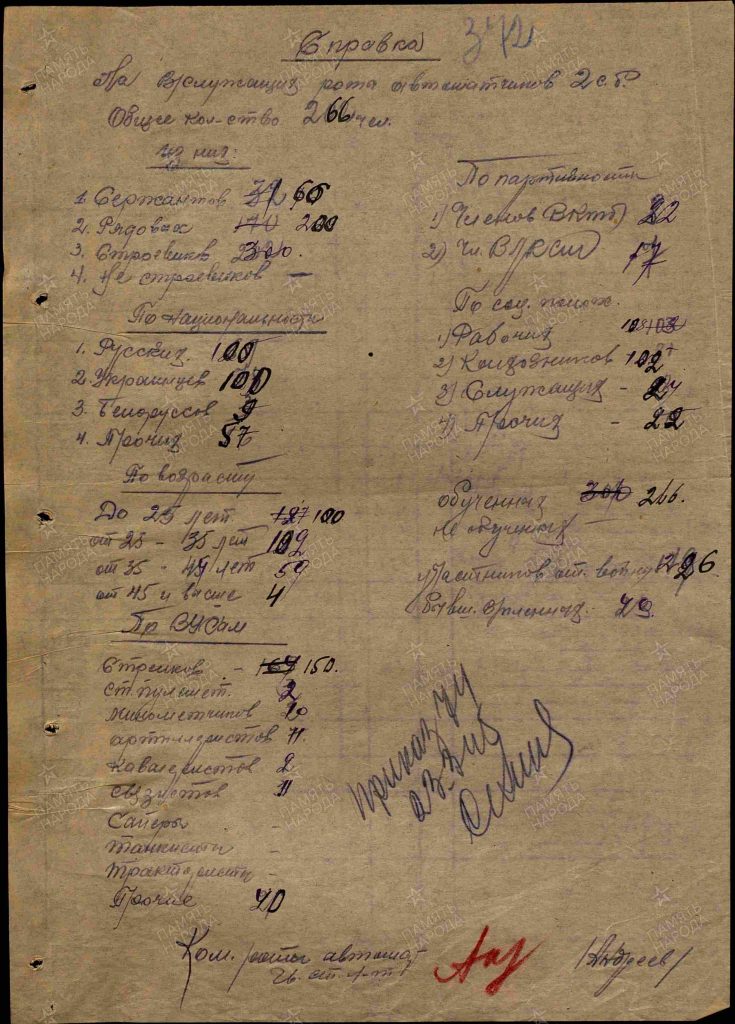 342
Справка
На в/служащих роты автоматчиков 2 с.б.
Общее кол-ство 266 чел.
из них:
1. Сержантов 66
2. Рядовых 170 200
3. Строевиков 300.
4. Не строевиков —
По национальности
1. Русских. 100
2. Украинцев 100
3. Белоруссов 9
4. Прочих 57
По возрасту
До 25 лет 127 100
от 25 - 35 лет 102
от 35 - 45 лет 59
от 45 и выше 4
По ВУСам
Стрелков - 150.
ст. пулемет. 2
минометчиков 20
артиллеристов 11.
кавалеристов 2
связистов 11
Саперы -
танкисты -
трактористы -
Прочие 70
По партийности
1) Членов ВКПб) 22
2) Чл. ВЛКСМ 17
По соц. полож.
1) Рабочих 108 103
2) Колхозников 102
3) Служащих - 27
4) Прочих - 22
обученных 300 266.
не обученных —
Участников от. войны 226
бывш. в плену 29.
приказ
Ком. роты автомат
Гв. ст. л-т
/Андреев/
ПАМЯТЬ НАРОДА